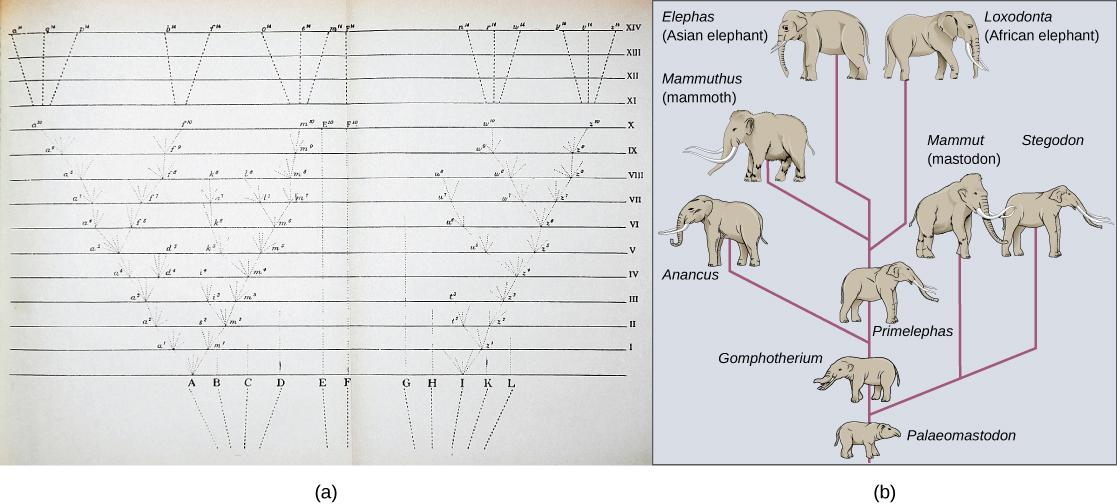 a¹⁴ q¹⁴ p¹⁴ b¹⁴ f¹⁴ o¹⁴ e¹⁴ m¹⁴ F¹⁴ n¹⁴ r¹⁴ w¹⁴ y¹⁴ v¹⁴ z¹⁴ XIV
XIII
XII
XI
a¹⁰ f¹⁰ m¹⁰ E¹⁰ F¹⁰ w¹⁰ z¹⁰ X
a⁹ f⁹ m⁹ w⁹ z⁹ IX
a⁸ f⁸ k⁸ l⁸ m⁸ u⁸ w⁸ z⁸ VIII
a⁷ f⁷ k⁷ l⁷ m⁷ u⁷ w⁷ z⁷ VII
a⁶ f⁶ k⁶ m⁶ u⁶ z⁶ VI
a⁵ d⁵ k⁵ m⁵ u⁵ z⁵ V
a⁴ d⁴ i⁴ m⁴ z⁴ IV
a³ i³ m³ t³ z³ III
a² s² m² t² z² II
a¹ m¹ z¹ I
A B C D E F G H I K L
(a)
Elephas
(Asian elephant)
Loxodonta
(African elephant)
Mammuthus
(mammoth)
Mammut
(mastodon)
Stegodon
Anancus
Primelephas
Gomphotherium
Palaeomastodon
(b)